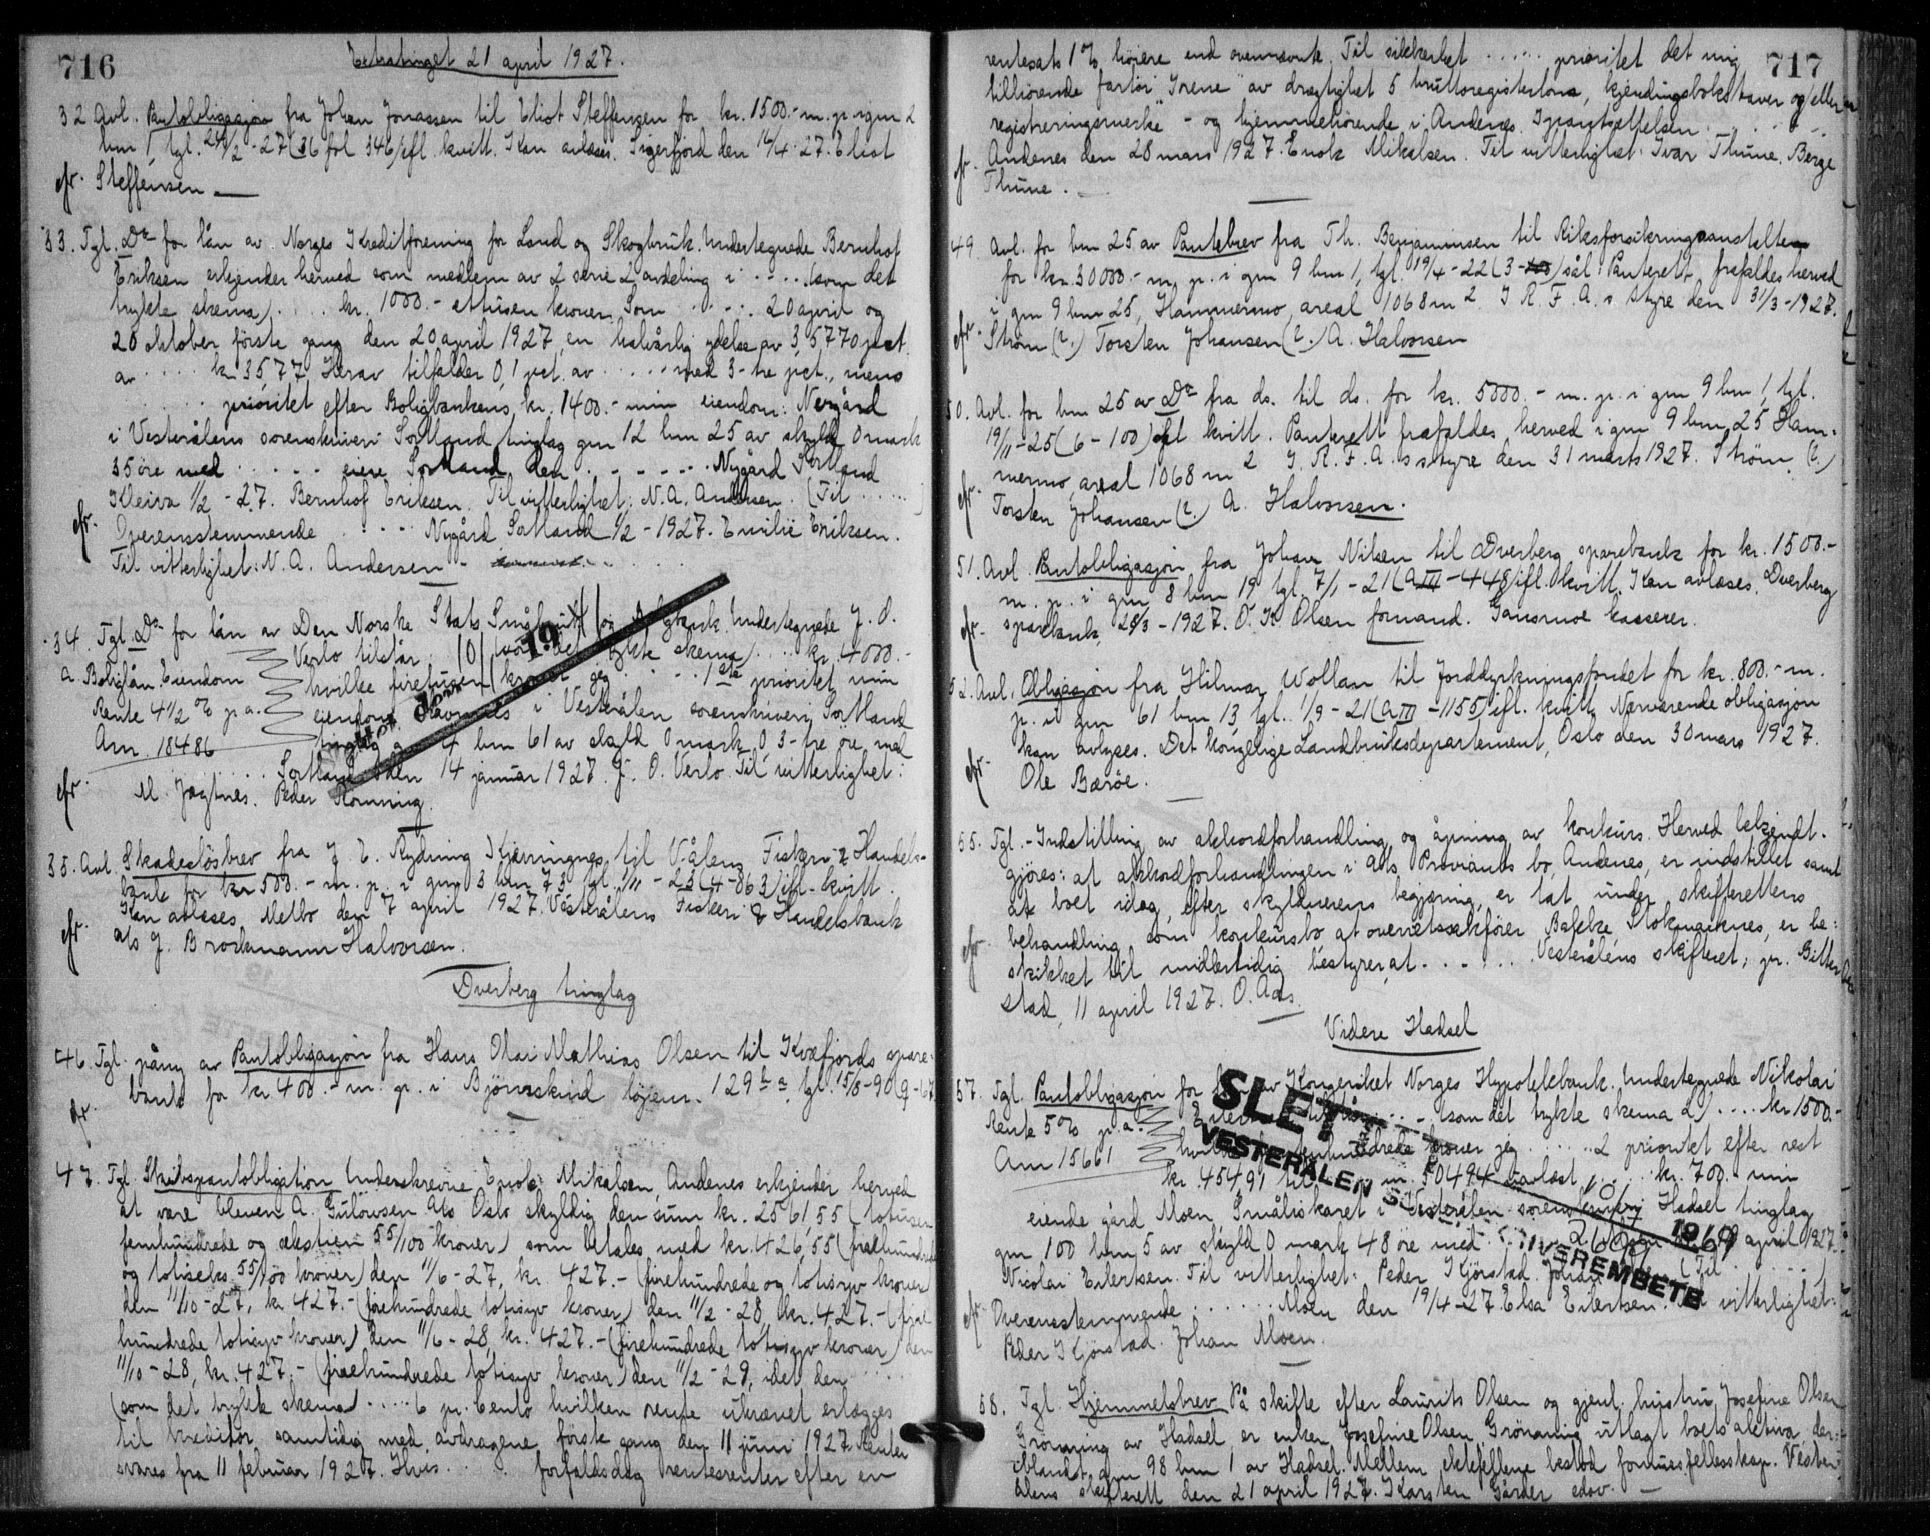 716
Extratinget 21 april 1927.
32 Avl. Pantobligasjon fra Johan Jonassen til Eliot Steffensen for kr. 1500.- m. p. i gnr 2
bnr 1, tgl. 24/2-27 (36 fol 346) ifl. kvitt. Kan avlæses. Sigerfjord den 16/4-27. Eliot
cfr. Steffensen
33. Tgl. Do for lån av Norges Kreditforening for Land og Skogbruk. Undertegnede Bernhof
Eriksen erkjender herved som medlem av 2 serie 2 avdeling i ..... (som det
trykte skema) .... kr. 1000.- ettusen kroner. Som ..... 20 april og
20 oktober første gang den 20 april 1927, en halvårlig ydelse av 3,5770 pct.
av ..... kr 35,77 Herav tilfalder 0,1 pct. av ..... med 3-tre pct., mens
..... prioritet efter Boligbankens kr. 1400.- min eiendom: Nygård
i Vesterålens sorenskriveri Sortland tinglag gnr 12 bnr 25 av skyld 0 mark
35 øre med ..... eiere Sortland den ...... Nygård Sortland
Kleiva 1/2-27. Bernhof Eriksen. Til vitterlighet: N. A. Andersen. (Til ......)
cfr. Overensstemmende .... Nygård Sortland 1/2-1927. Emilie Eriksen.
Til vitterlighet: N. A. Andersen -
34. Tgl. Do for lån av Den Norske Stats Småbruk og Boligbank. Undertegnede J. O.
Verlo tilstår (som det trykte skema) .... kr. 4000.-
a Boliglån. Eiendom hvilke firetusen kroner jeg ..... 1ste prioritet min
Rente 4 1/2 % p a. eiendom i Vesterålen sorenskriveri Sortland
Am. 18486 tinglag g. 4 bnr 61 av skyld 0 mark 03-tre øre med
..... Sortland den 14 januar 1927. J. O. Verlo. Til vitterlighet:
cfr. M. Jægtnes. Peder Rønning.
19
35. Avl. Skadesløsbrev fra J. E. Rydning Kjærringnes til V.ålens Fiskeri & Handels-
bank for kr 500.- m. p. i gnr 3 bnr 73 tgl. 1/11-23 (4-863) ifl. kvitt.
Kan avlæses. Melbo den 7 april 1927. Vesterålens Fiskeri & Handelsbank
cfr. a/s J. Brockmann Halvorsen.
Dverberg tinglag
46. Tgl. påny av Pantobligasjon fra Hans Olai Mathias Olsen til Kvæfjords spare-
bank for kr 400.- m. p. i Bjørnskind løpenr. 129 a, tgl. 15/8-90 (9-67
cfr.
47. Tgl. Skibspantobligation Underskrevne Enok Mikalsen, Andenes erkjender herved
at være bleven A. Gulowsen A/s Oslo skyldig den sum kr. 2561,55 (totusen
femhundrede og ekstien 55/100 kroner) som betales med kr. 426,55 (firehundrede
og totiseks 55/100 kroner) den 11/6-27, kr. 427.- (firehundrede og totisyv kroner)
den 11/10-27, kr 427.- (firehundrede totisyv kroner) den 11/2-28, kr. 427.- (fire
hundrede totisyv kroner) den 11/6-28, kr. 427.- (firehundrede totisyv kroner) den
11/10-28, kr. 427.- (firehundrede totisyv kroner) den 11/2-29, idet den .....
(som det trykte skema) ..... 6 pr. cento hvilken rente ukrævet erlægges
til kreditor samtidig med avdragene første gang den 11 juni 1927. Renten
svares fra 11 februar 1927. Hvis ..... forfaldsdag rentesrenter efter en
717
rentesats 1% høiere end ovennævnte. Til sikkerhet ...... prioritet det mig
tilhørende fartøi "Irene" av drægtighet 5 bruttoregistertons, kjendingsbokstaver og/eller
registreringsmerke - og hjemmehørende i Andenes. Ipantsettelsen ......
cfr. Andenes den 28 mars 1927. Enok Mikalsen. Til vitterlighet: Ivar Thune. Berge
Thune.
49. Avl. for bnr 25 av Pantebrev fra Th. Benjaminsen til Riksforsikringsanstalten
for kr. 30000.- m. p. i gnr 9 bnr 1, tgl. 19/4-22 (3- ) sål: Panterett frafaldes herved
i gnr 9 bnr 25, Hammermo, areal 1068 m2. I R. F. A.s styre den 31/3-1927.
cfr. Strøm (l.) Torsten Johansen (l.) A. Halvorsen
50. Avl. for bnr 25 av Do fra ds. til ds. for kr. 5000.- m. p. i gnr 9 bnr 1, tgl.
19/11-25 (6-100) ifl kvitt. Panterett frafaldes herved i gnr 9 bnr 25 Ham-
mermo, areal 1068 m2 I. R. F. A.s styre den 31 marts 1927. Strøm (l.)
cfr. Torsten Johansen (l.) A. Halvorsen.
51. Avl. Pantobligasjon fra Johan Nilsen til Dverberg sparebank for kr. 1500.-
m. p. i gnr 8 bnr 19 tgl. 7/1-21 (A III-448) ifl. kvitt. Kan avlæses. Dverberg
cfr. sparebank, 28/3-1927. O. K. Olsen formand. Gansmoe kasserer.
52. Avl. Obligasjon fra Hilmar Wollan til Jorddyrkningsfondet for kr. 800.- m.
p. i gnr 61 bnr 13, tgl. 1/9-21 (A III-1155) ifl. kvitt. Nærværende obligasjon
kan avlyses. Det kongelige Landbruksdepartement, Oslo den 30 mars 1927.
cfr. Ole Bærøe.
55. Tgl.- Indstilling av akkordforhandling og åpning av konkurs. Herved bekjendt-
gjøres: at akkordforhandlingen i A/s Proviants bo, Andenes, er indstillet samt
at boet idag, efter skyldnerens begjæring, er tat under skifterettens
behandling som konkursbo, at overretssakfører Bakke, Stokmarknes, er be-
cfr. skikket til midlertidig bestyrer, at ...... Vesterålens skifteret, pr. Bitter
stad, 11 april 1927. O. Aas.
Videre Hadsel
57. Tgl. Pantobligasjon for lån av Kongeriket Norges Hypotekbank. Undertegnede Nikolai
Rente 5% p. a. Eilertsen tilstår .... (som det trykte skema 2) .... kr 1500.-
Am 15661 hvilke femhundrede kroner jeg ...... 2 prioritet efter rest
kr. 454,91 50494 avløst .... kr. 700.- min
eiende gård Moen, Småliskaret i Vesterålen sorenskriveri Hadsel tinglag
gnr 100 bnr 5 av skyld 0 mark 48 øre med ..... april 1927.
Nicolai Eilertsen. Til vitterlighet: Peder Kjørstad. Johan (Til .....)
cfr. Overensstemmende ...... Moen den 19/4-27 Elsa Eilertsen. vitterlighet:
Peder Kjørstad. Johan Moen.
SLET
VESTERÅLEN S
IVEREMBETE
1969
58. Tgl. Hjemmelsbrev På skifte efter Laurits Olsen og gjenl. hustru Josefine Olsen
Grønning av Hadsel er enken Josefine Olsen Grønning utlagt boets aktiva der-
iblandt gnr 98 bnr 1 av Hadsel. Mellem ektefellene bestod formuesfellesskap. Vester-
ålens skifterett den 21 april 1927. Karsten Gårder edsv.